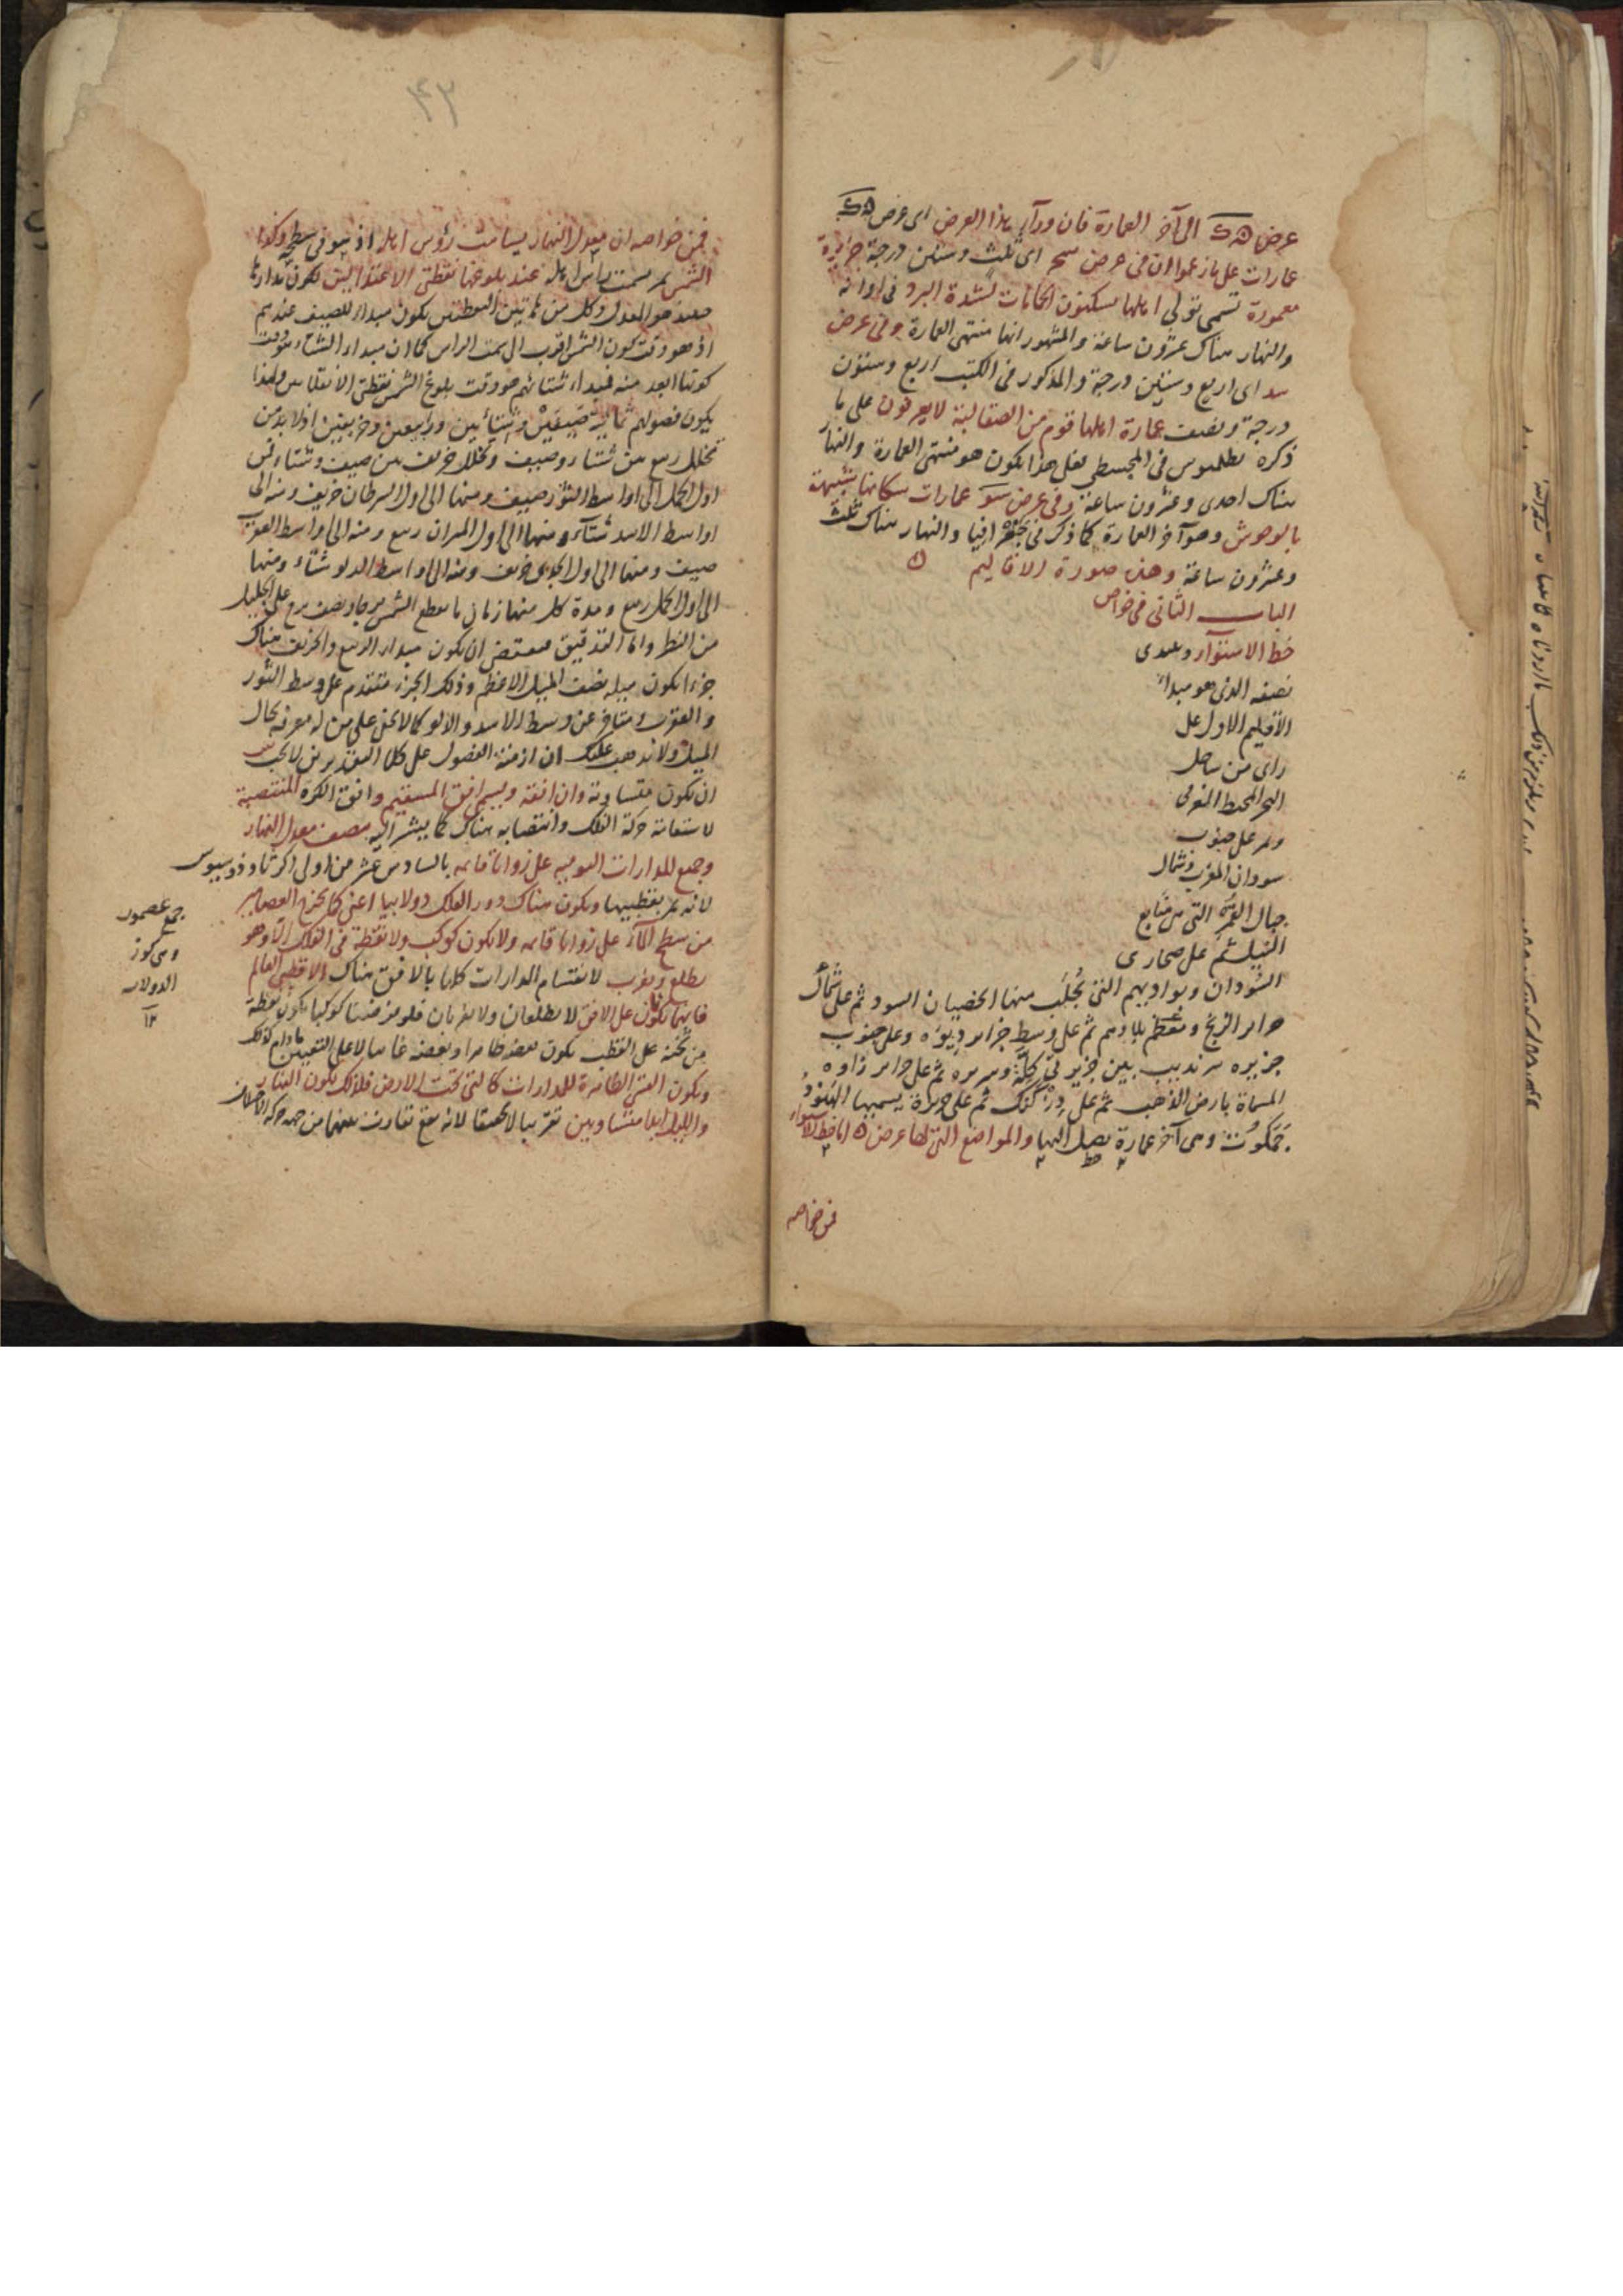 عرض الى آخر العمارة فان وراء هذا العرض اى عرض
عمارات على ما زعموا ان فى عرض سح اى ثلث وستين درجة جزيرة
معمورة تسمى تولى اهلها يسكنون الحمامات لشدة البرد فى اوانه
والنهار هناك عشرون ساعة والمشهور انها منتهى العمارة وفى عرض
سد اى اربع وستين درجة والمذكور فى الكتب اربع وستون
درجة ونصف عمارة اهلها قوم من الصقالبة لا يعرفون على ما
ذكره بطلميوس فى المجسطى فعلى هذا يكون هو منتهى العمارة والنهار
هناك احدى وعشرون ساعة وفى عرض سو عمارات سكانها شبيهة
بالوحوش وهو آخر العمارة كما ذكر فى جغرافيا والنهار هناك ثلث
وعشرون ساعة وهذه صورة الاقاليم
الباب الثانى فى خواص
خط الاستوآء ويبتدى
نصفه الذى هو مبدأ
الاقليم الاول على
راى من ساحل
البحر المحيط المغربى
ويمر على جنوب
سودان المغرب وشمال
جبال القمر التى من منابع
النيل ثم على صحارى
السودان وبواديهم التى يجلب منها الخصيان السود ثم على شمال
جزاير الزنج ومعظم بلادهم ثم على وسط جزاير ديوه وعلى جنوب
جزيرة سرنديب بين جزيرتى كله وسريره ثم على جزاير زاوه
المسماة بارض الذهب ثم على دز كنك ثم على جزيرة يسميها الهنود
جمكوت وهى آخر عمارة يصل اليها والمواضع التى لها عرض اما خط الاستواء
فمن خواصه
٤٢
فمن خواصه ان معدل النهار يسامت رؤس اهله اذ هو فى سطحه وكذا
الشمس تمر بسمت راس اهله عند بلوغها نقطتى الاعتدالين لكون مدارها
حينئذ هو المعدل وكل من هاتين النقطتين يكون مبداء للصيف عندهم
اذ هو وقت كون الشمس اقرب الى سمت الراس كما ان مبداء الشتاء وقت
كونها ابعد منه فمبداء شتائهم هو وقت بلوغ الشمس نقطتى الانقلابين ولهذا
يكون فصولهم ثمانية صيفين وشتائين وربيعين وخريفين اذ لا بد من
تخلل ربيع بين شتاء وصيف وتخلل خريف بين صيف وشتاء فمن
اول الحمل الى اواسط الثور صيف ومنها الى اول السرطان خريف ومنه الى
اواسط الاسد شتاء ومنها الى اول الميزان ربيع ومنه الى اواسط العقرب
صيف ومنها الى اول الجدى خريف ومنه الى اواسط الدلو شتاء ومنها
الى اول الحمل ربيع ومدة كل منها زمان ما يقطع الشمس برجا ونصف برج على الجليل
من النظر واما التدقيق فيقتضى ان يكون مبداء الربيع والخريف هناك
جزءا يكون ميله نصف الميل الاعظم وذلك الجزء متقدم على وسط الثور
والعقرب ومتاخر عن وسط الاسد والدلو كما لا يخفى على من له معرفة بحال
الميل ولا يذهب عليك ان ازمنة الفصول على كلا التقديرين لا يجب
ان تكون متساوية وان افقه ويسمى افق المستقيم وافق الكرة المنتصبة
لاستقامة حركة الفلك وانتصابه هناك كما يشير اليه ينصف معدل النهار
وجميع المدارات اليومية على زوايا قايمة بالسادس عشر من اولى اكر ثاوذوسيوس
لانه يمر بقطبيها ويكون هناك دور الفلك دولابيا اعنى كما يخرج العصامير
من سطح الماء على زوايا قايمة ولا يكون كوكب ولا نقطة فى الفلك الا وهو
يطلع ويغرب لانقسام المدارات كلها بالافق هناك الا قطبى العالم
فانهما يكونان على الافق لا يطلعان ولا يغربان فلو فرضنا كوكبا يكون نقطة
من ثخنه على القطب يكون بعضه ظاهرا وبعضه غايبا لا على التعيين ما دام كذلك
ويكون القسى الظاهرة للمدارات كالتى تحت الارض فلذلك يكون النهار
والليل ابدا متساويين تقريبا لا تحقيقا لانه يقع تفاوت بينهما من جهة حركة
جمع عصمور
وهى كوز
الدولاب
١٢